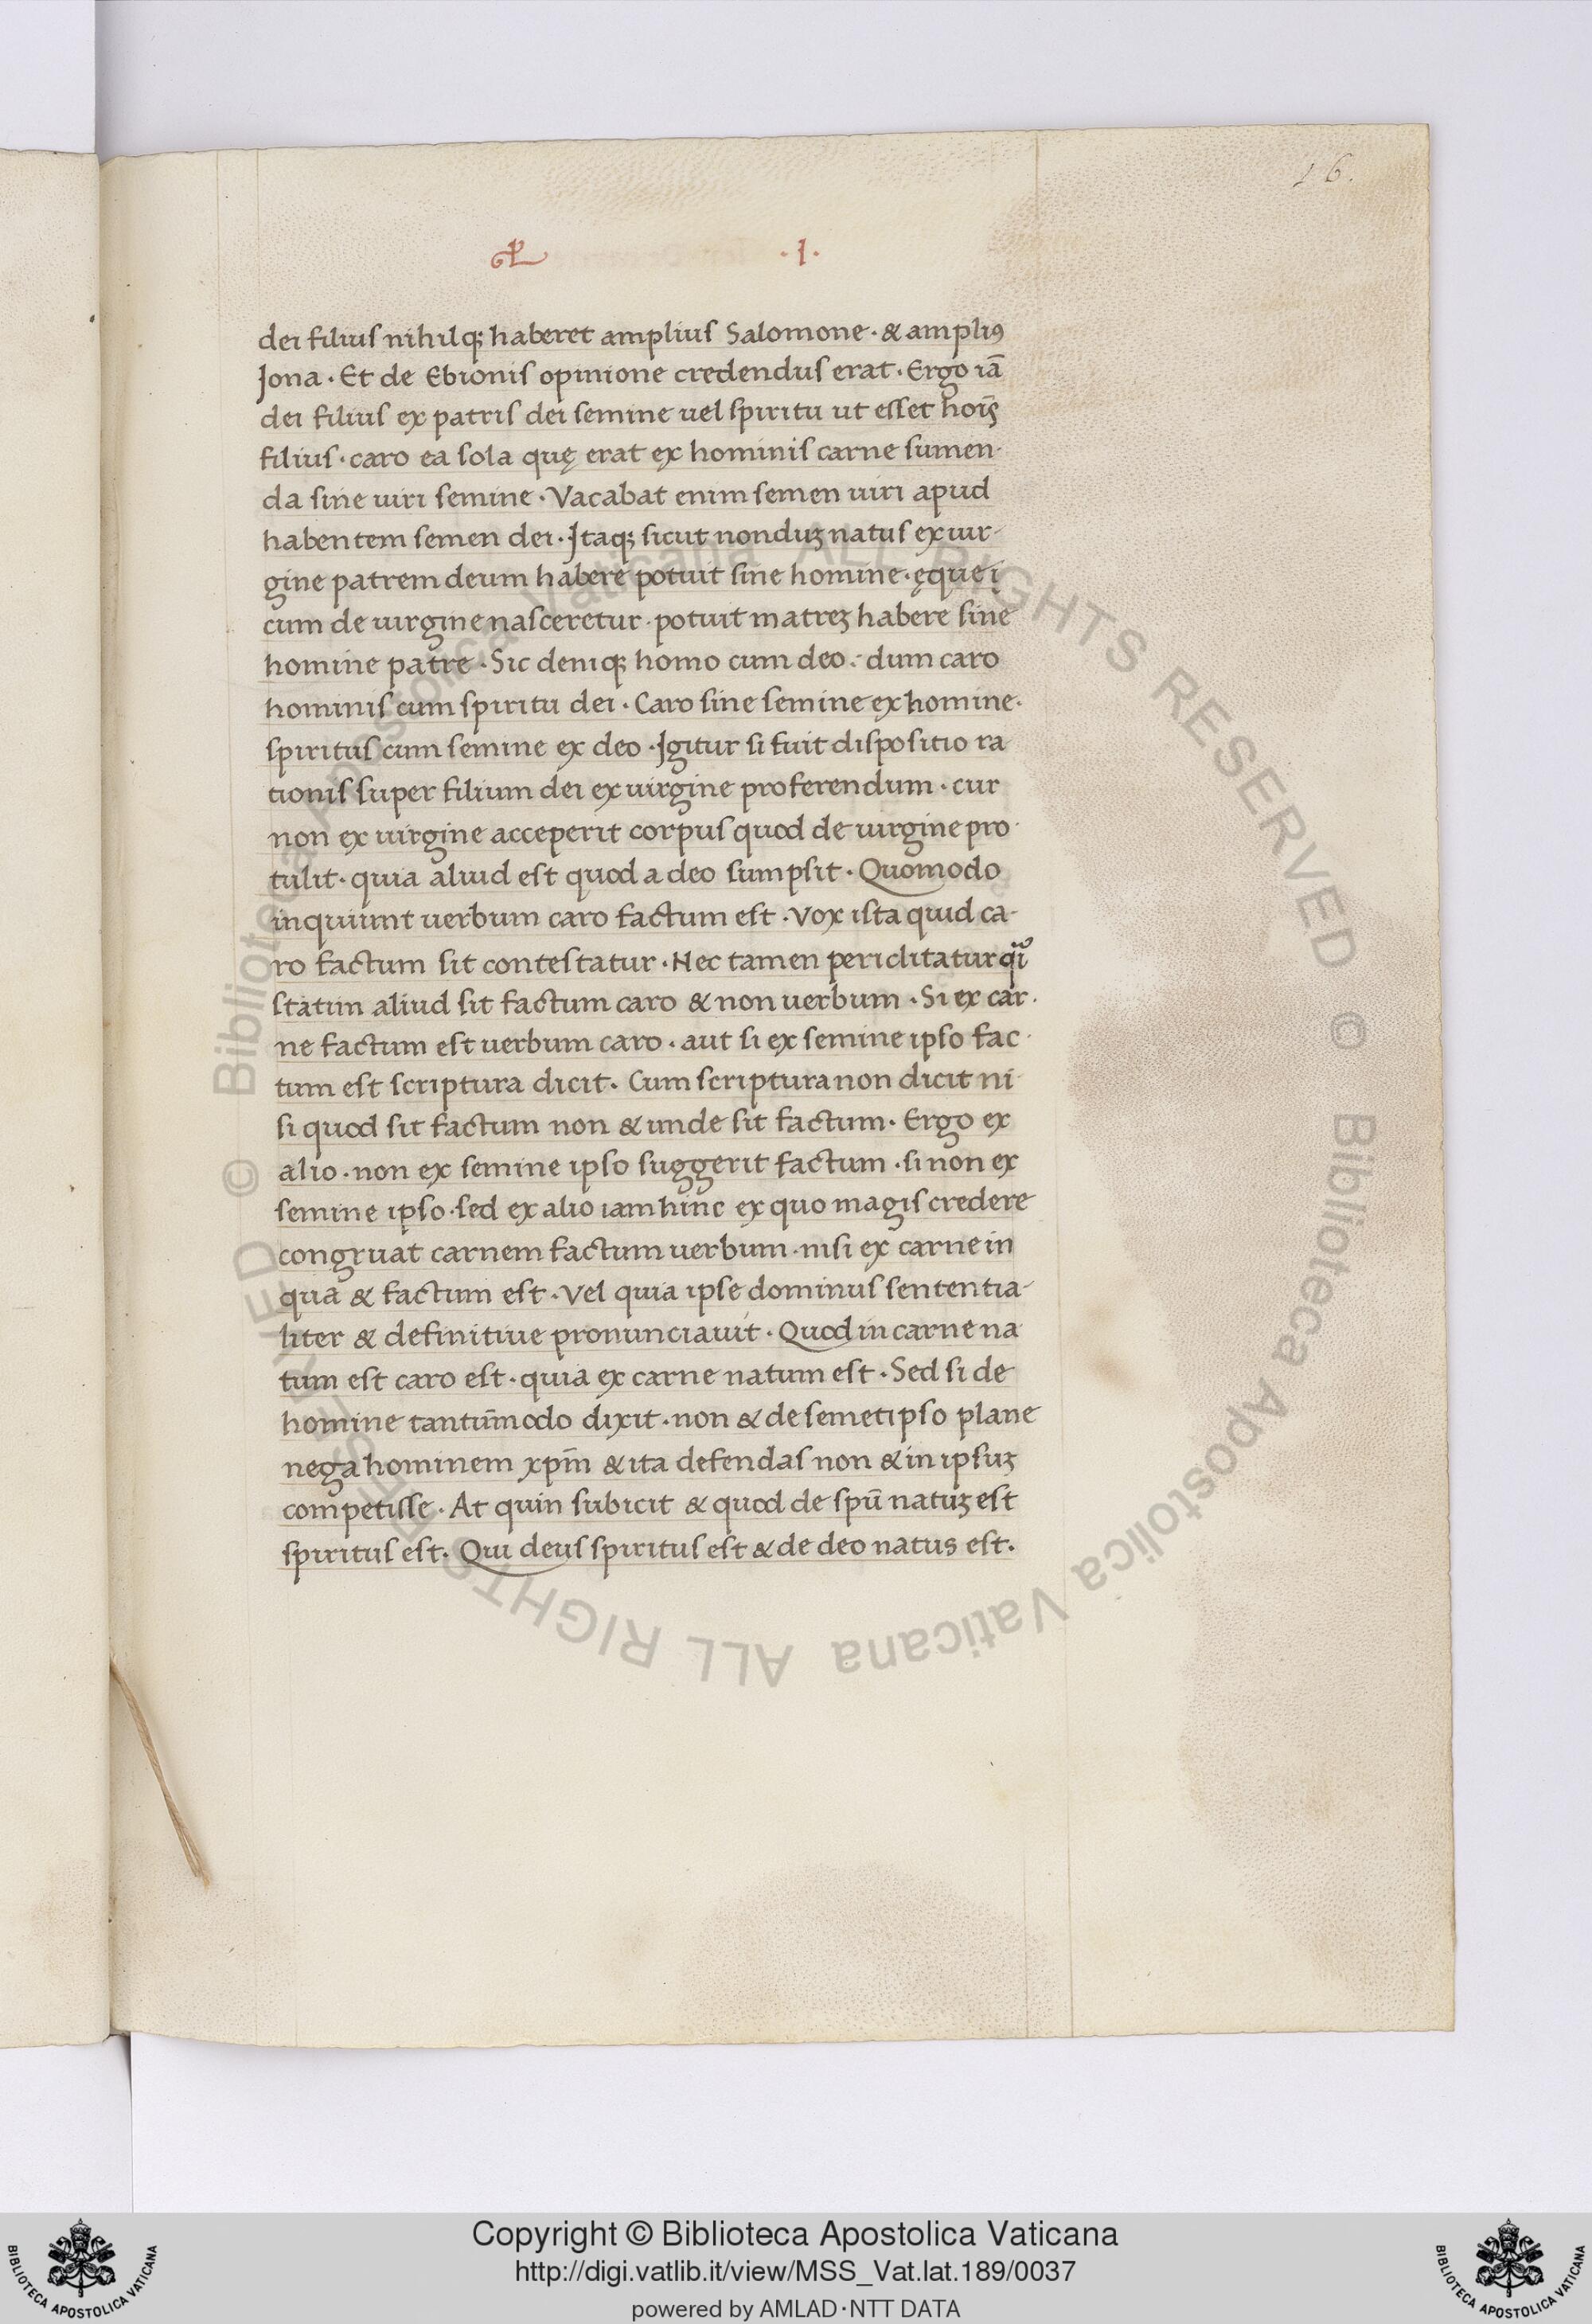 16.
·I·
dei filius nihilqꝫ haberet amplius Salomone · & ampliꝰ
Jona · Et de Ebionis opinione credendus erat · Ergo iā
dei filius ex patris dei semine uel spiritu ut esset hoīs
filius · caro ea sola quę erat ex hominis carne sumen-
da sine uiri semine · Vacabat enim semen uiri apud
habentem semen dei · Itaqꝫ sicut nonduꝫ natus ex uir-
gine patrem deum habere potuit sine homine · ęque ī
cum de uirgine nasceretur · potuit matreꝫ habere sine
homine patre · Sic deniqꝫ homo cum deo · dum caro
hominis cum spiritu dei · Caro sine semine ex homine ·
spiritus cum semine ex deo · Igitur si fuit dispositio ra
tionis super filium dei ex uirgine proferendum · cur
non ex uirgine acceperit corpus quod de uirgine pro-
tulit · quia aliud est quod a deo sumpsit · Quomodo
inquiunt uerbum caro factum est · Vox ista quid ca-
ro factum sit contestatur · Nec tamen periclitatur
statim aliud sit factum caro & non uerbum · Si ex car-
ne factum est uerbum caro · aut si ex semine ipso fac-
tum est scriptura dicit · Cum scriptura non dicit ni-
si quod sit factum non & unde sit factum · Ergo ex
alio · non ex semine ipso suggerit factum · si non ex
semine ipso · sed ex alio iam hinc ex quo magis credere
congruat carnem factum uerbum · nisi ex carne in
qua & factum est · Vel quia ipse dominus sententia-
liter & definitiue pronunciauit · Quod in carne na
tum est caro est · quia ex carne natum est · Sed si de
homine tantūmodo dixit · non & de semetipso plane
nega hominem xpm̄ & ita defendas non & in ipsuꝫ
competisse · At quin subicit & quod de spū natuꝫ est
spiritus est · Qui deus spiritus est & de deo natus est ·
© Biblioteca Apostolica Vaticana ALL RIGHTS RESERVED © Biblioteca Apostolica Vaticana ALL RIGHTS RESERVED
Copyright © Biblioteca Apostolica Vaticana
http://digi.vatlib.it/view/MSS_Vat.lat.189/0037
powered by AMLAD·NTT DATA
BIBLIOTECA APOSTOLICA VATICANA
BIBLIOTECA APOSTOLICA VATICANA